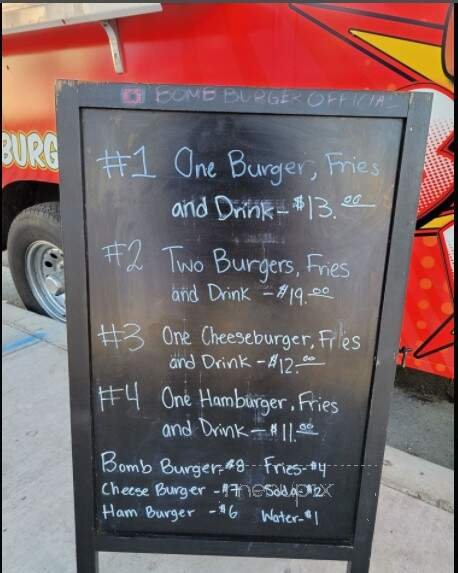 BOMB BURGER OFFICIAL
BURG
#1 One Burger, Fries
and Drink - $13.00
#2 Two Burgers, Fries
and Drink - $19.00
#3 One Cheeseburger, Fries
and Drink - $12.00
#4 One Hamburger, Fries
and Drink - $11.00
Bomb Burger - $8 Fries - $4
Cheese Burger - $7 Soda - $2
Ham Burger - $6 Water - $1
menupix